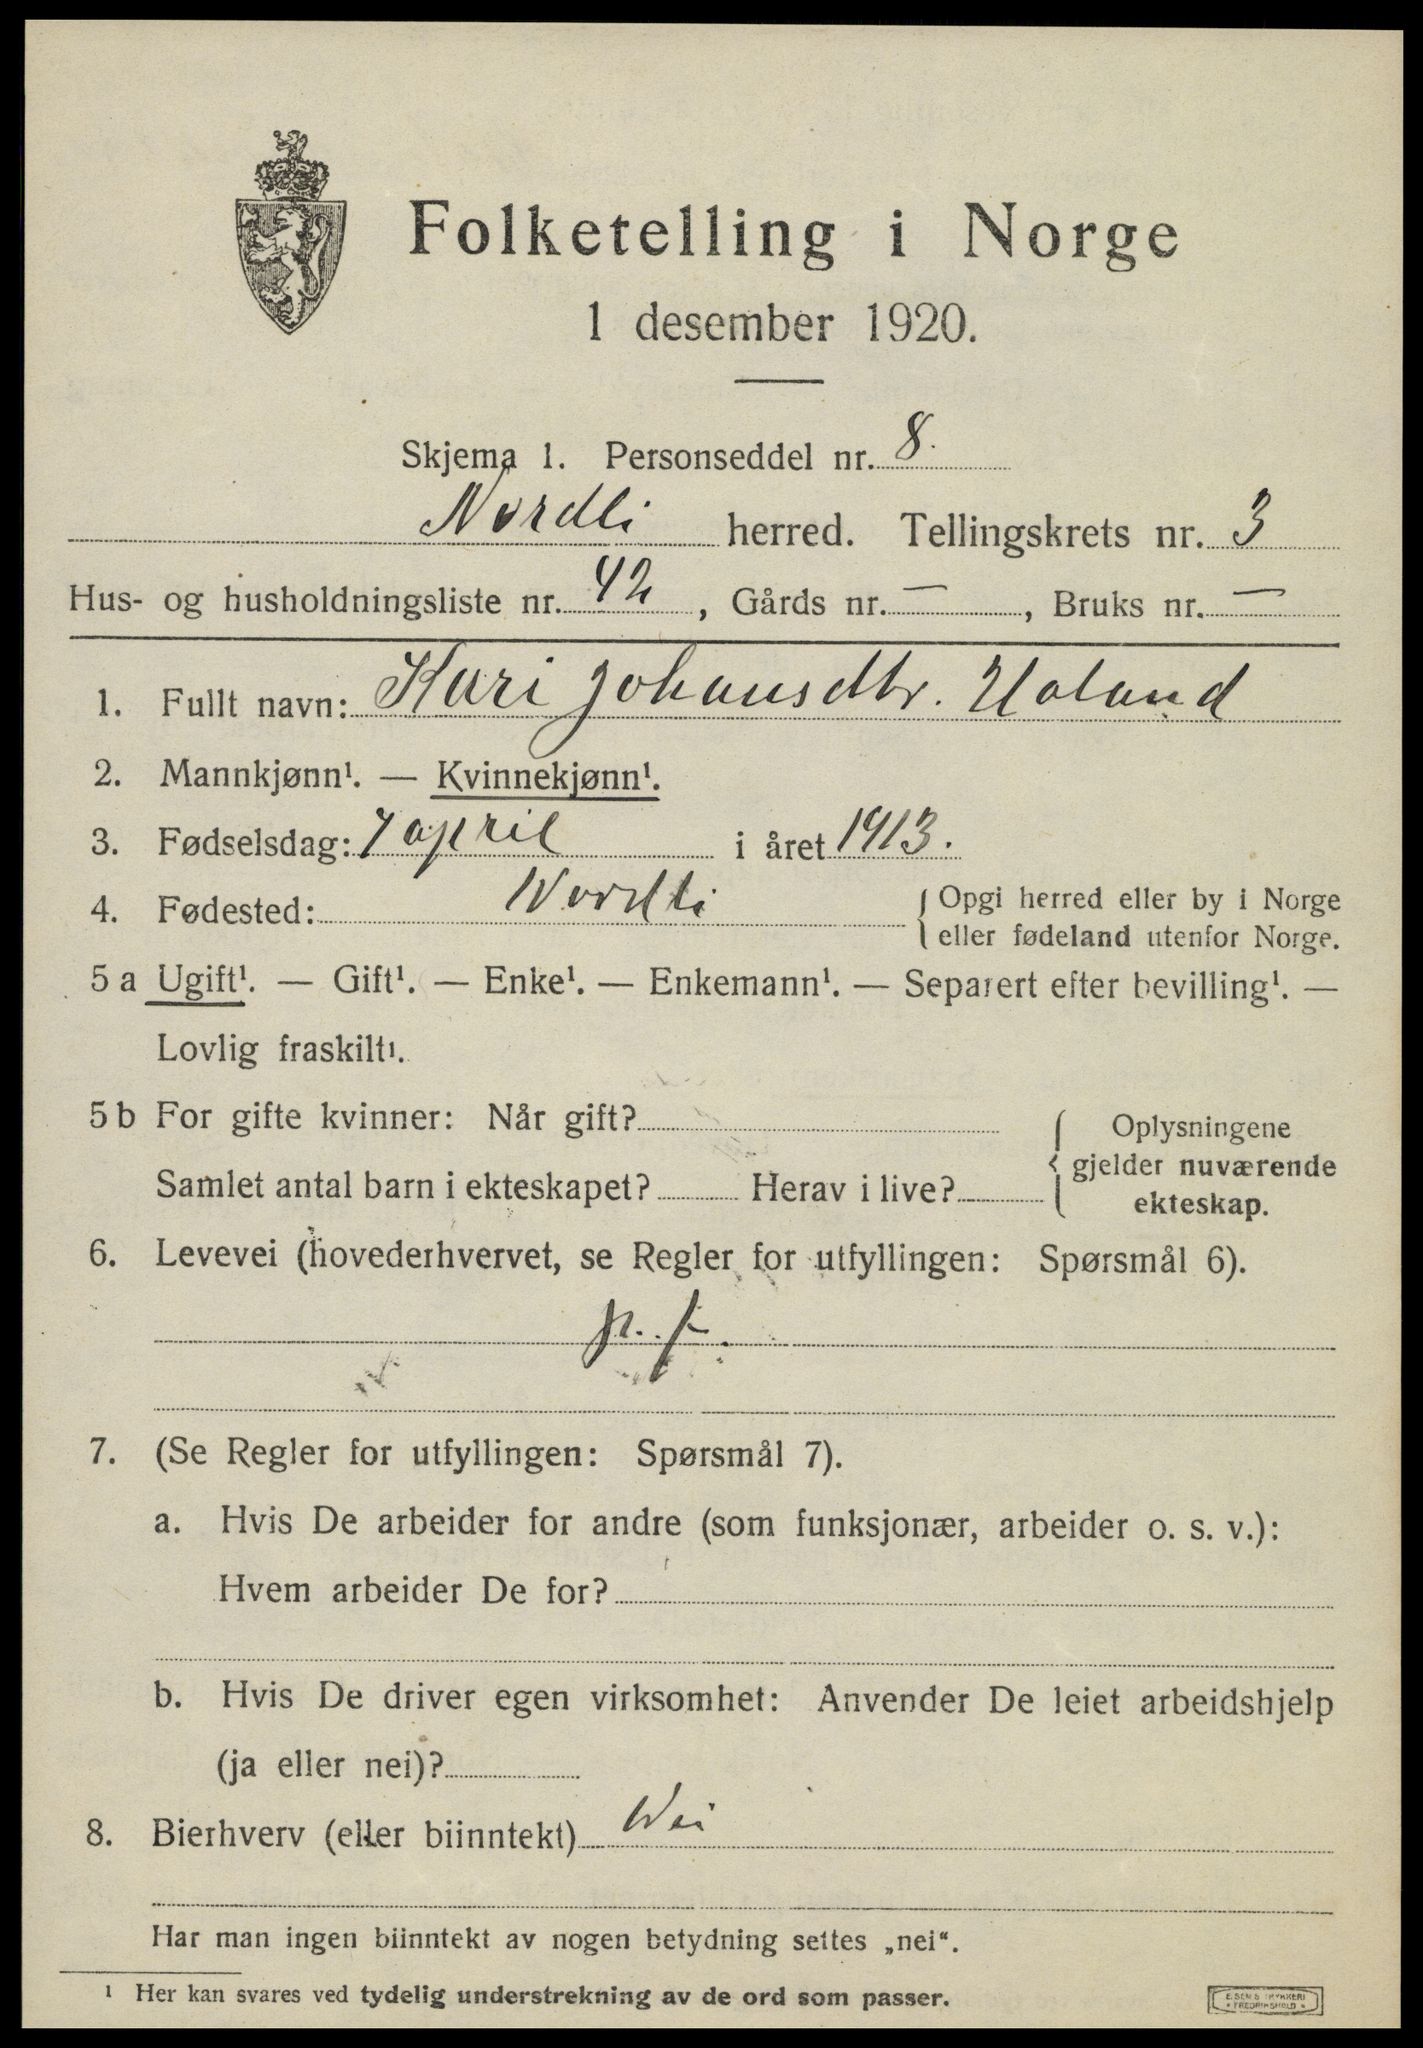 Folketelling i Norge
1 desember 1920.
Skjema 1. Personseddel nr. 8.
Nordli herred. Tellingskrets nr. 3
Hus- og husholdningsliste nr. 42, Gårds nr. —, Bruks nr. —
1. Fullt navn: Kari Johansdtr.
2. Mannkjønn¹. — Kvinnekjønn¹.
3. Fødselsdag: 7 april i året 1913.
4. Fødested: Nordli { Opgi herred eller by i Norge
eller fødeland utenfor Norge.
5 a Ugift¹. — Gift¹. — Enke¹. — Enkemann¹. — Separert efter bevilling¹. —
Lovlig fraskilt¹.
5 b For gifte kvinner: Når gift?
Samlet antal barn i ekteskapet? Herav i live?
{ Oplysningene
gjelder nuværende
ekteskap.
6. Levevei (hovederhvervet, se Regler for utfyllingen: Spørsmål 6).
7. (Se Regler for utfyllingen: Spørsmål 7).
a. Hvis De arbeider for andre (som funksjonær, arbeider o. s. v.):
Hvem arbeider De for?
b. Hvis De driver egen virksomhet: Anvender De leiet arbeidshjelp
(ja eller nei)?
8. Bierhverv (eller biinntekt) Nei
Har man ingen biinntekt av nogen betydning settes „nei“.
¹ Her kan svares ved tydelig understrekning av de ord som passer.